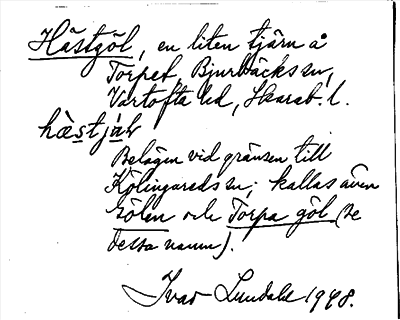 Hästgöl, en liten tjärn å
Torpet, Bjurbäcks sn,
Vartofta hd, Skarab. l.
hæstjáļ
Belägen vid gränsen till
Kölingareds sn; kallas även
Gölen och Torpa göl (se
dessa namn).
Ivar Lundahl 1948.